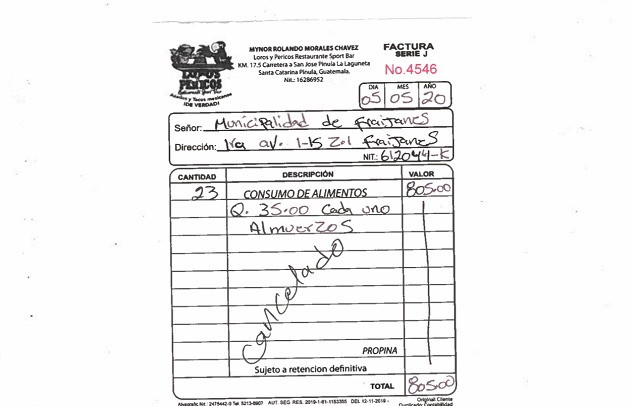 MYNOR ROLANDO MORALES CHAVEZ
Loros y Pericos Restaurante Sport Bar
KM. 17.5 Carretera a San Jose Pinula La Laguneta
Santa Catarina Pinula, Guatemala.
Nit.: 16286952
LOROS Y
PERICOS
Antojitos y Tacos mexicanos
¡DE VERDAD!
FACTURA
SERIE J
No.4546
DIA MES AÑO
05 05 20
Señor: Municipalidad de Fraijanes
Dirección: 1ra av. 1-15 Z.1 Fraijanes
NIT.: 612044-K
CANTIDAD DESCRIPCIÓN VALOR
23 CONSUMO DE ALIMENTOS 805.00
Q. 35.00 cada uno
Almuerzos
cancelado
PROPINA
Sujeto a retencion definitiva
TOTAL 805.00
AUT. SEG. RES. 2019-1-61-1153355 DEL 12-11-2019 - Original: Cliente
Duplicado: Contabilidad